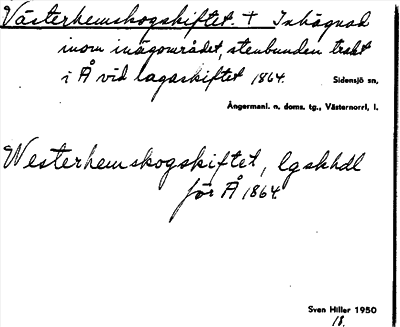 Västerhemskogskiftet. + Inhägnad
inom inägområdet, stenbunden trakt
i Å vid lagaskiftet 1864.
Sidensjö sn,
Ångermanl. n. doms. tg., Västernorrl, l.
Westerhemskogskiftet, lgskhdl
för Å 1864
Sven Hiller 1950
18.